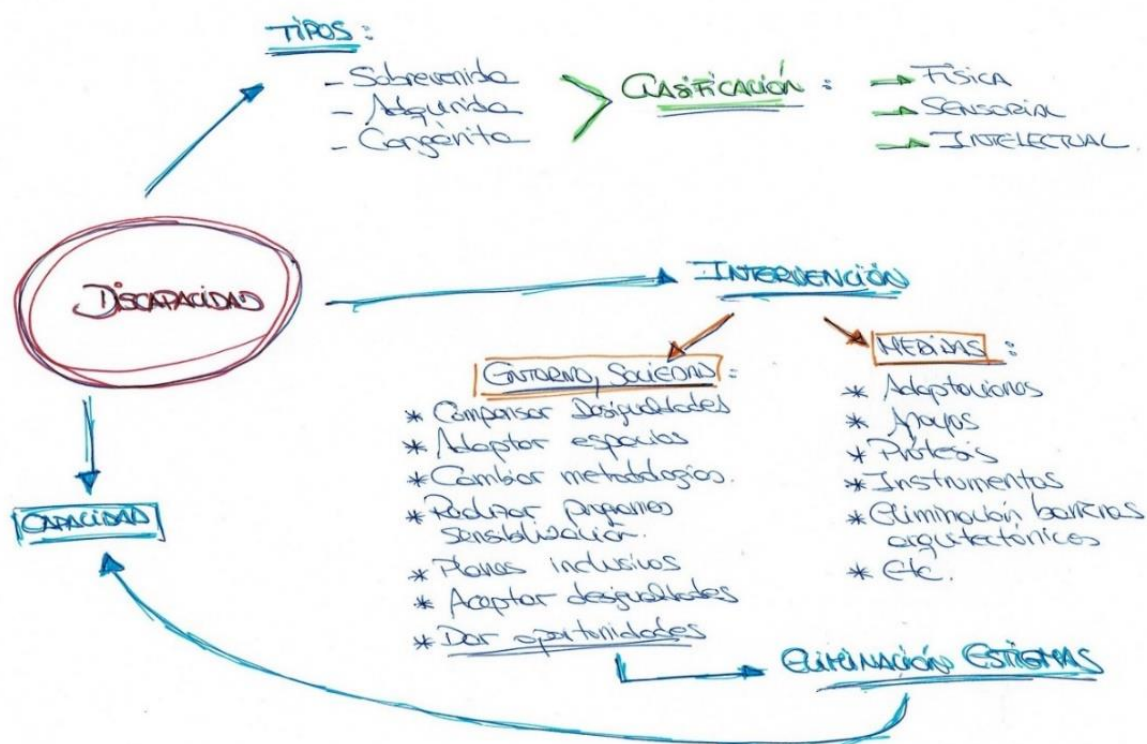 TIPOS:
- Sobrevenida
- Adquirida
- Congénita
CLASIFICACIÓN:
FÍSICA
SENSORIAL
INTELECTUAL
DISCAPACIDAD
INTERVENCIÓN
ENTORNO, SOCIEDAD:
* Compensar Desigualdades
* Adaptar espacios
* Cambiar metodologías.
* Realizar programas
sensibilización.
* Planes inclusivos
* Aceptar desigualdades
* Dar oportunidades
MEDIDAS:
* Adaptaciones
* Apoyos
* Prótesis
* Instrumentos
* Eliminación barreras
arquitectónicas
* Etc.
ELIMINACIÓN ESTIGMAS
CAPACIDAD